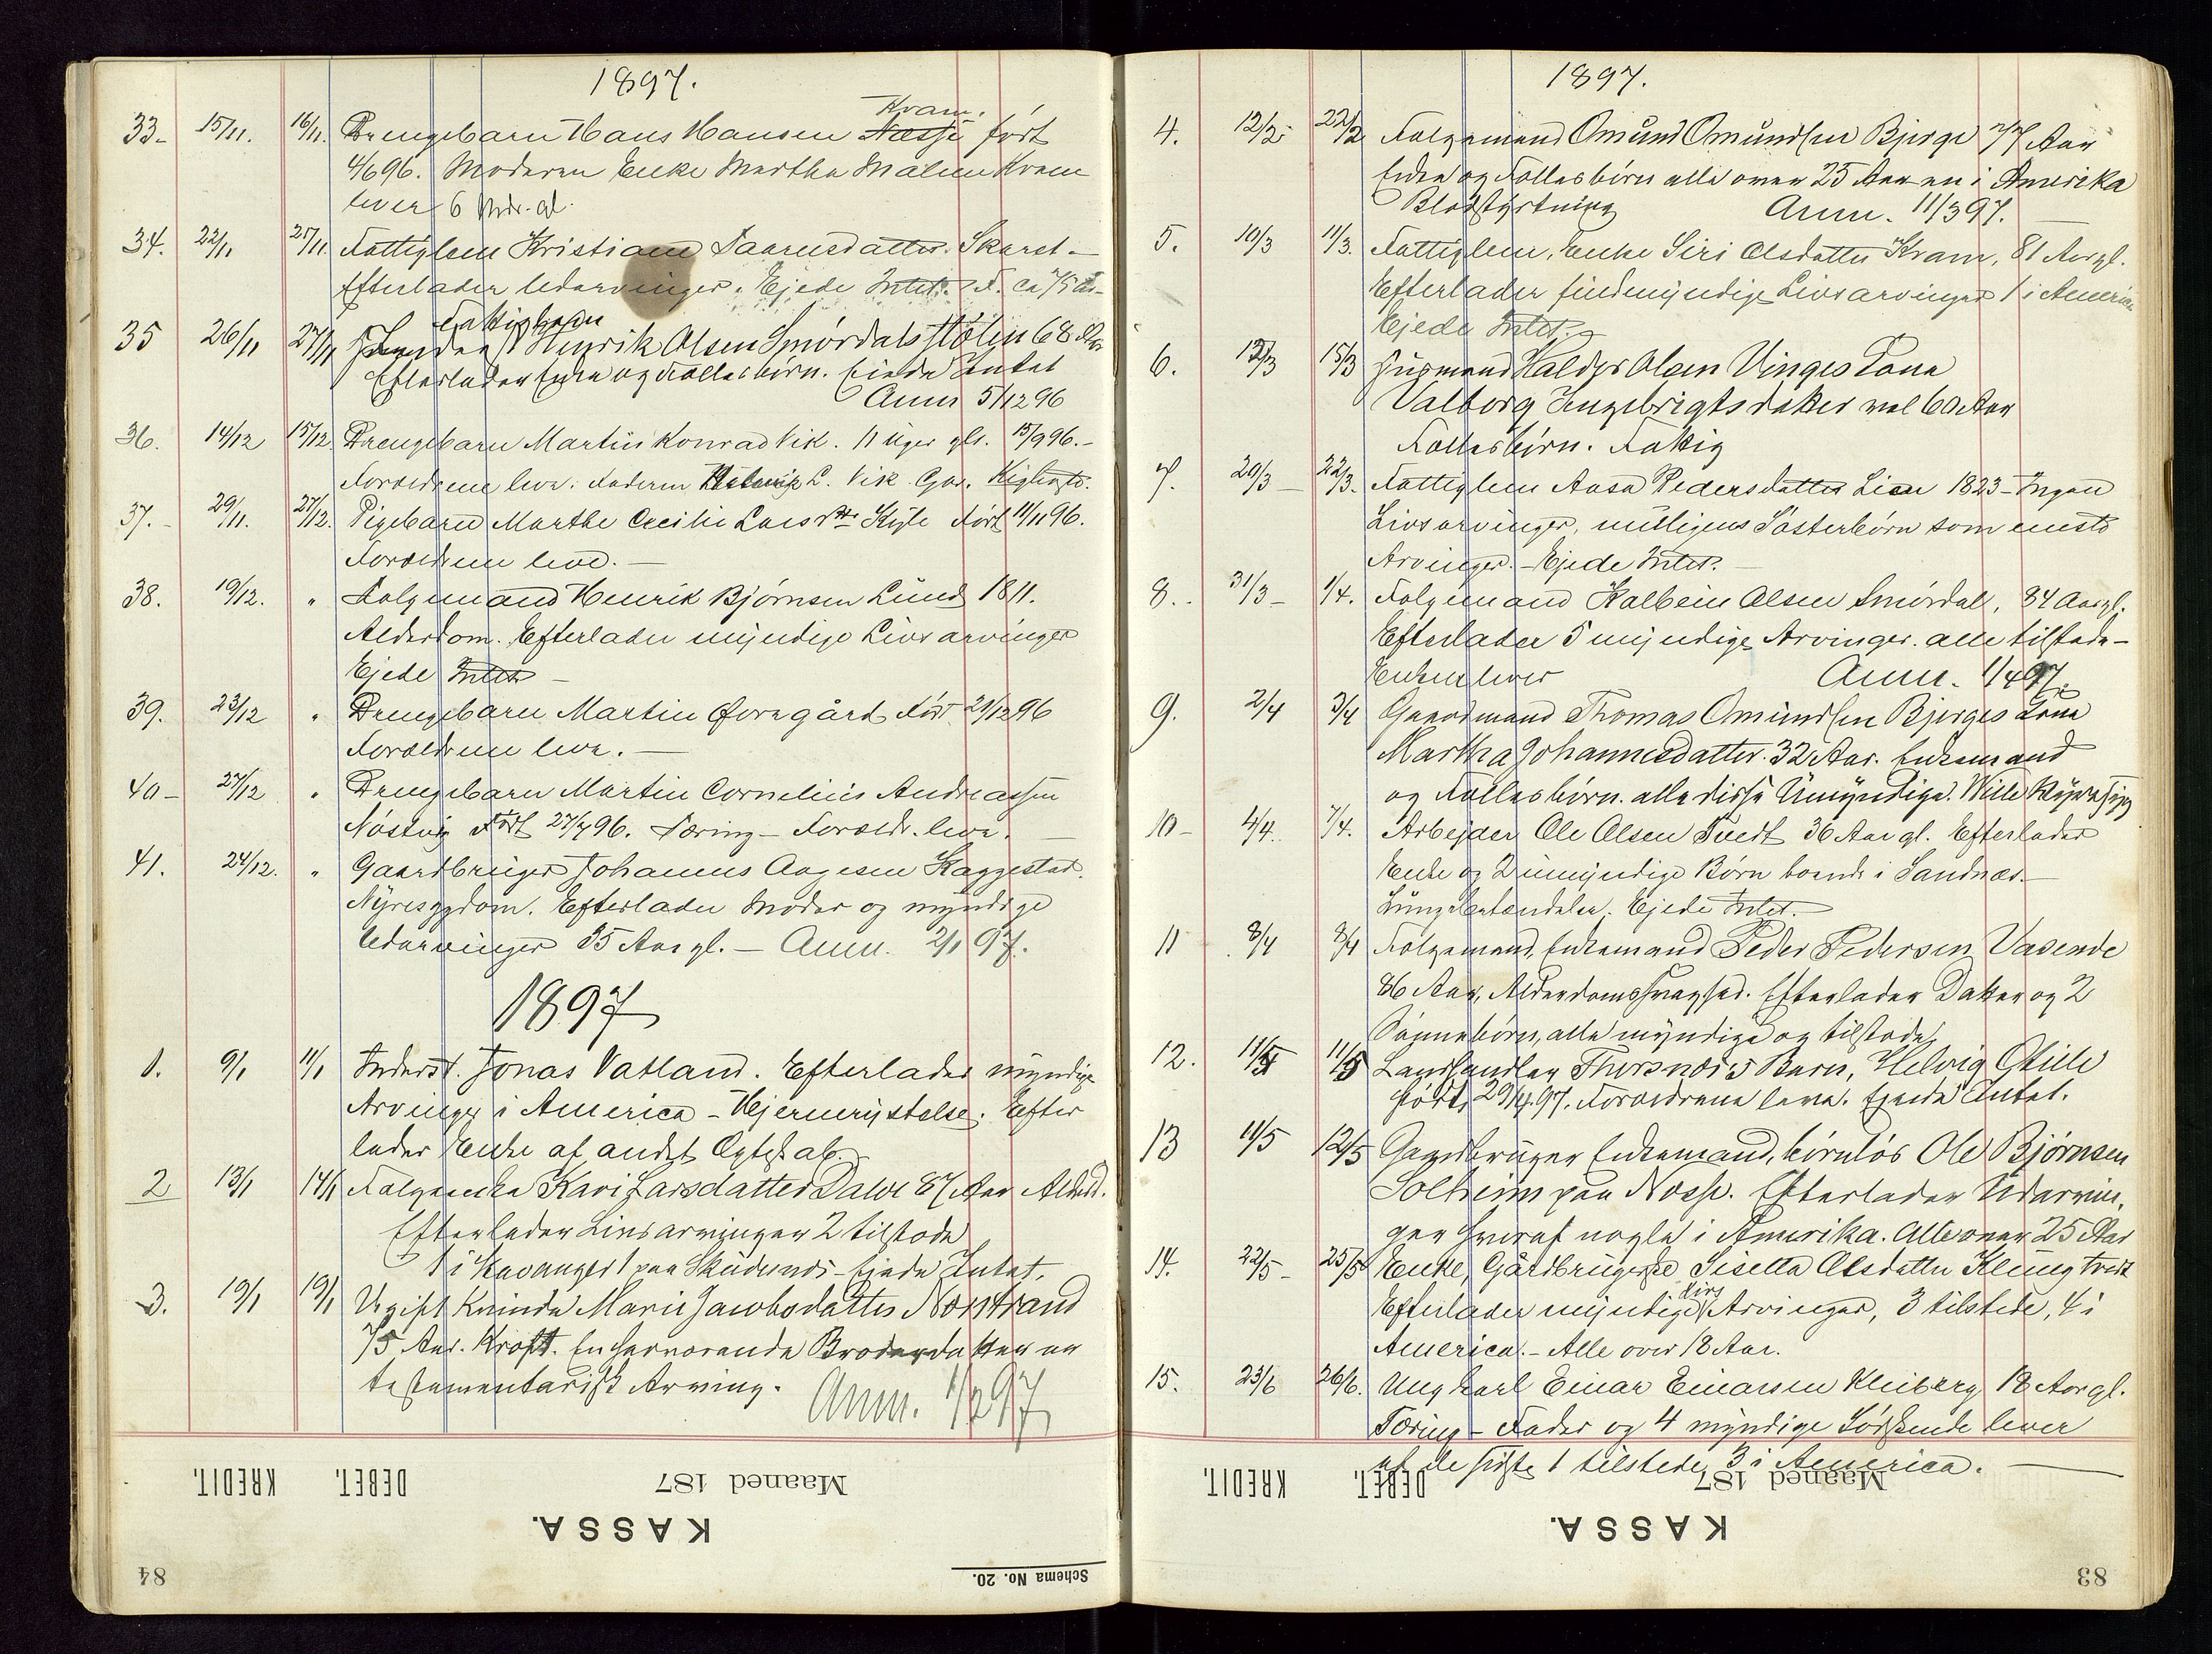 1897.
33. 15/11. 16/11. Drengebarn Hans Hansen Næssø Kvam. født
4/6 96. Moderen Enke Martha Malene Kvam
lever 6 Mdr. gl.
34. 22/11 25/11. Fattiglem Kristiane Saamsdatter Skaret –
Efterlader Udarvinger. Ejede Intet. F. ca 75 Aar
35 26/11 27/11 Fattiglem Henrik Olsen Smørdalsstølen 68 Aar
Efterlader Enke og Fællesbørn. Eiede Intet
Anm 5/12 96
36. 14/12 15/12. Drengebarn Martin Konrad Vik. 11 Uger gl. 15/9 96.–
Forældrene leve. Faderen L. Vik
37. 29/11. 27/12. Pigebarn Marthe Cecilie Larsdtr Kyle Født 11/11 96.
Forældrene leve. –
38. 19/12. " Folgemand Henrik Bjørnsen Lund 1811.
Alderdom. Efterlader myndige Livsarvinger
Ejede Intet –
39. 23/12 " Drengebarn Martin Øvregård Født 21/12 96
Forældrene leve. –
40– 27/12 " Drengebarn Martin Cornelius Andreassen
Nøstvig Født 27/7 96. Tæring – Forældr. leve. –
41. 24/12. " Gaardbruger Johannes Aagesen Kaggestad.
Nyresygdom. Efterlader Moder og myndige
Udarvinger 35 Aar gl. – Anm. 2/1 97.
1897
1. 9/1 11/1 Inderst. Jonas Vatland. Efterlader myndige
Arvinger i America – Hjernerystelse. Efter
lader Enke af andet Egteskab.
2 13/1 14/1 Folgeenke Kari Larsdatter Dalve 87 Aar Alderd.
Efterlader Livsarvinger 2 tilstede
1 i Stavanger 1 paa Skudenes – Eiede Intet.
3. 19/1 19/1 Ugift Kvinde Marie Jacobsdatter Norstrand
75 Aar. Kræft. En herværende Broderdatter er
testamentarisk Arving.
Anm. 1/2 97
KREDIT. DEBET. Maaned 187
KASSA.
84 Schema No. 20.
1897.
4. 12/2 22/2 Folgemand Omund Omundsen Bjerge 77 Aar
Enke og Fællesbørn alle over 25 Aar en i Amerika
Blodstyrtning Anm. 11/3 97.
5. 10/3 11/3. Fattiglem, Enke Siri Olsdatter Kvam, 81 Aar gl.
Efterlader fuldmyndige Livsarvinger 1 i Amerika
Ejede Intet.
6. 12/3 15/3 Husmand Halder Olsen Vinges Kone
Valborg Ingebrigtsdatter vel 60 Aar
Fællesbørn. Fattig
7. 20/3 – 22/3. Fattiglem Aasa Pedersdatter Lien 1823 – Ingen
Livsarvinger, muligens Søsterbørn som eneste
Arvinger. – Ejede Intet.
8. 31/3 – 1/4. Folgemand Kolbein Olsen Smørdal, 84 Aar gl.
Efterlader 5 myndige Arvinger. alle tilstede –
Enken lever Anm. 1/4 97.
9. 2/4 3/4 Gaardmand Thomas Omundsen Bjerges Kone
Martha Johannesdatter. 32 Aar. Enkemand
og Fællesbørn. alle disse Umyndige.
10 – 4/4. 7/4. Arbejder Ole Olsen Tvedt 36 Aar gl. Efterlader
Enke og 2 umyndige Børn boende i Sandnæs. –
Lungebetændelse. Ejede Intet. –
11 8/4 8/4 Folgemand, Enkemand Peder Pedersen Vasende
86 Aar, Alderdomssvaghed. Efterlader Datter og 2
Sønnebørn, alle myndige og tilstede
12. 11/5 11/5 Landhandler Thorsnæs's Barn, Helvig Otilie
født 29/4 97. Forældrene leve. Ejede Intet.
13 11/5 12/5 Gaardbruger Enkemand, børnløs Ole Bjørnsen
Solheim paa Næssø. Efterlader Udarvin,
ger hvoraf nogle i Amerika. Alle over 25 Aar
14. 22/5 – 25/5 Enke, Gårdbrugerske Siselia Olsdatter Klungtvedt
Efterlader myndige Livs Arvinger, 3 tilstede, 4 i
America. – Alle over 18 Aar.
15. 23/6 26/6. Ungkarl Einar Einarsen Kleiberg 18 Aar gl.
Tæring – Fader og 4 myndige Søskende lever
af de sidste 1 tilstede, 3 i America. –
KREDIT. DEBET. Maaned 187
KASSA.
83